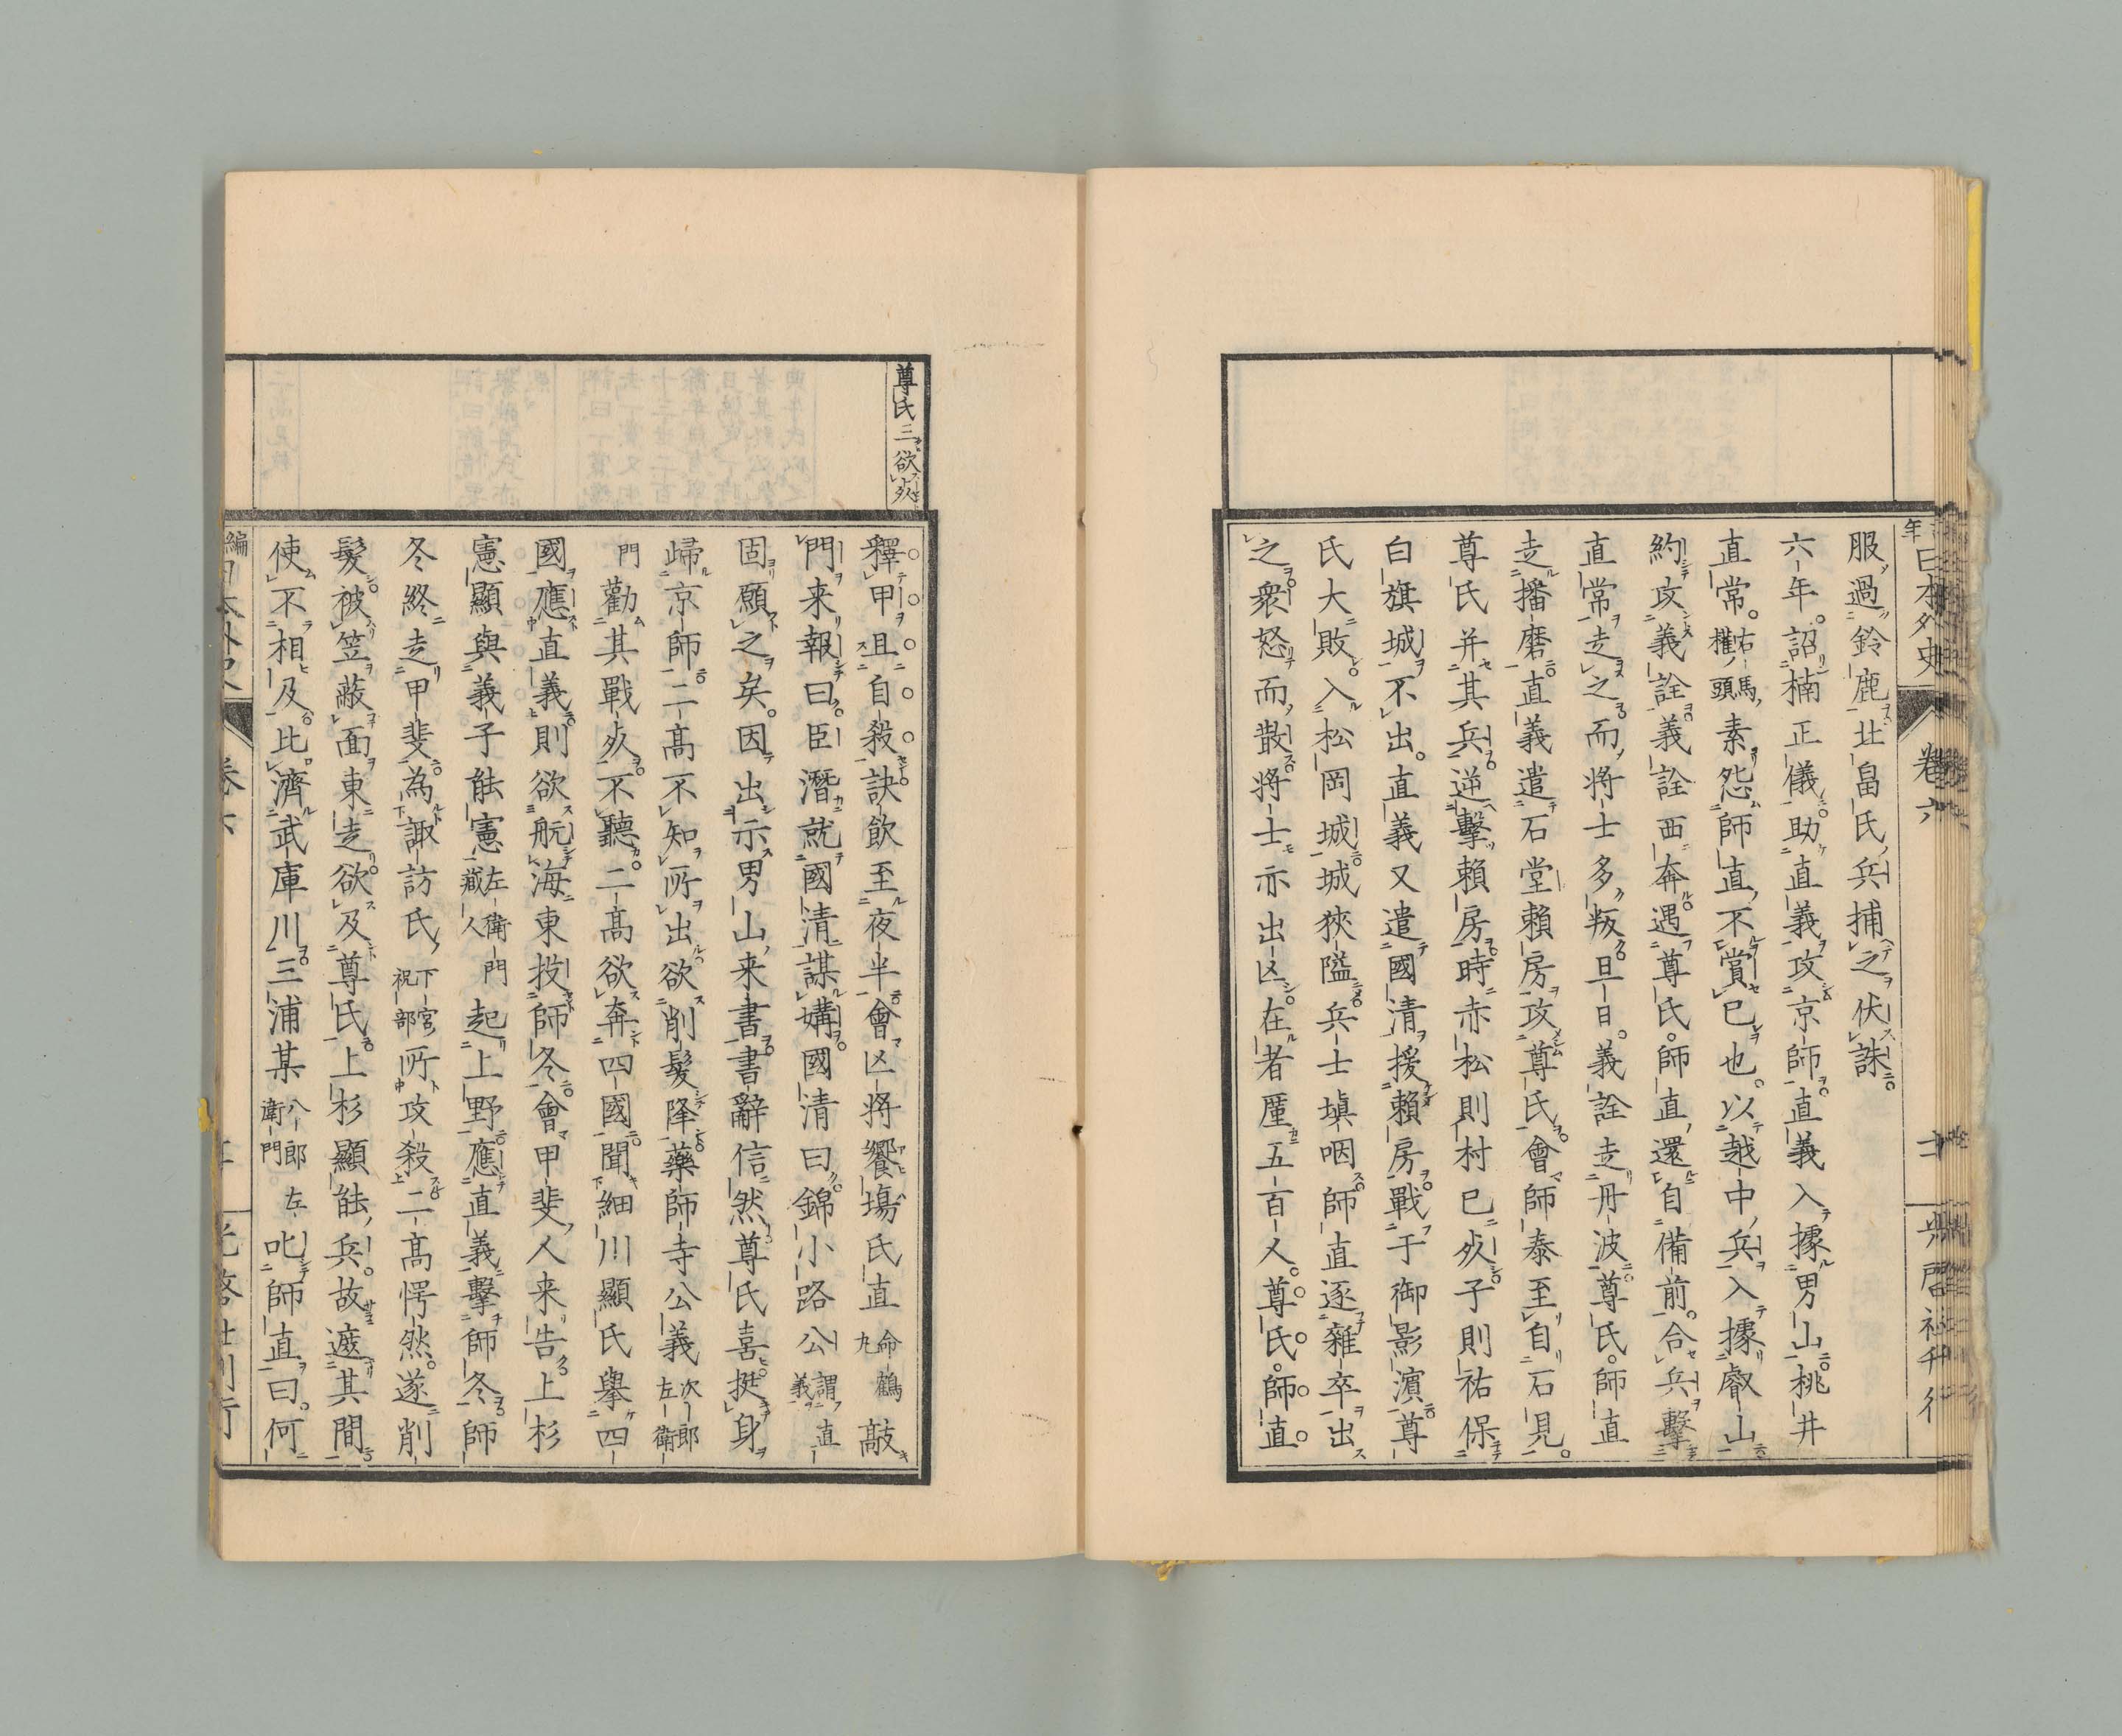 服過鈴鹿北畠氏兵捕之伏誅
六年。詔楠正儀助直義攻京師直義入據男山桃井
直常。右馬權頭素怨師直不賞已也。以越中兵入據叡山
約攻義詮義詮西奔遇尊氏。師直還自備前。合兵擊
直常走之而將士多叛旦日。義詮走丹波尊氏。師直
走播磨直義遣石堂賴房攻尊氏會師泰至自石見。
尊氏并其兵逆擊賴房時赤松則村已死子則祐保
白旗城不出。直義又遣國清援賴房戰于御影濱尊
氏大敗入松岡城城狹隘兵士塡咽師直逐雜卒出
之衆怒而散將士亦出亡在者厪五百人。尊氏。師直
日本外史
卷六
尊氏三欲死
釋甲且自殺訣飲至夜半會亡將饗塲氏直命鶴丸敲
門来報曰臣潛就國清謀媾國清曰錦小路公謂直義
固願之矣。因出示男山来書書辭信然尊氏喜挺身
歸京師二高不知所出欲削髮降藥師寺公義次郎左衛
門勸其戰死不聽二高欲奔四國聞細川顯氏擧四
國應直義則欲航海東投師冬會甲斐人来告上杉
憲顯與義子能憲左衛門藏人起上野應直義擊師冬師
冬終走甲斐為諏訪氏下宮祝部所攻殺二高愕然。遂削
髮被笠蔽面東走欲及尊氏上杉顯能兵。故遮其間
使不相及比濟武庫川三浦某八郎左衛門叱師直曰。何
卷六